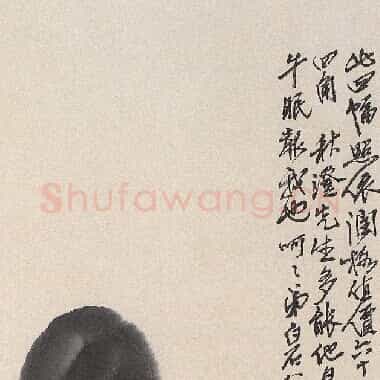 此四幅照依润格值價六十
四角 秋澄先生多能他日
牛眠報我也呵〻弟白石
Shufawang.CN